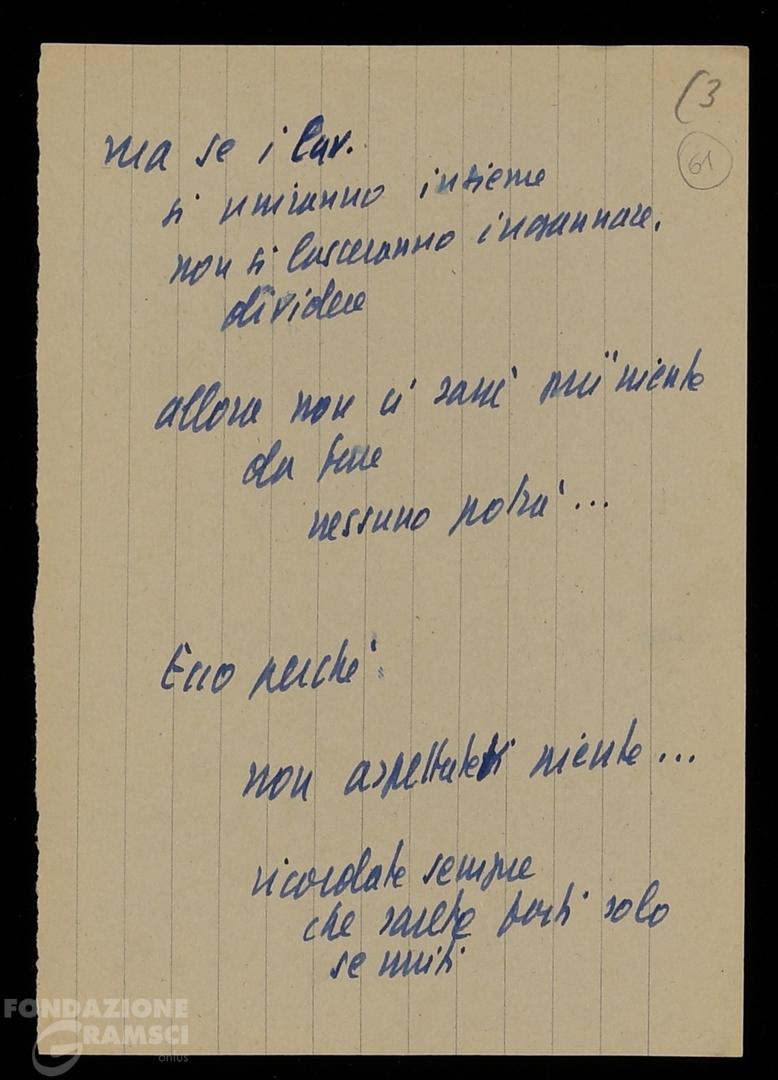 (3
61
ma se i lav.
si uniranno insieme
non si lasceranno ingannare,
dividere
allora non ci sarà più niente
da fare
nessuno potrà...
Ecco perché
non aspettateVi niente...
ricordate sempre
che sarete forti solo
se uniti
FONDAZIONE
GRAMSCI
onlus